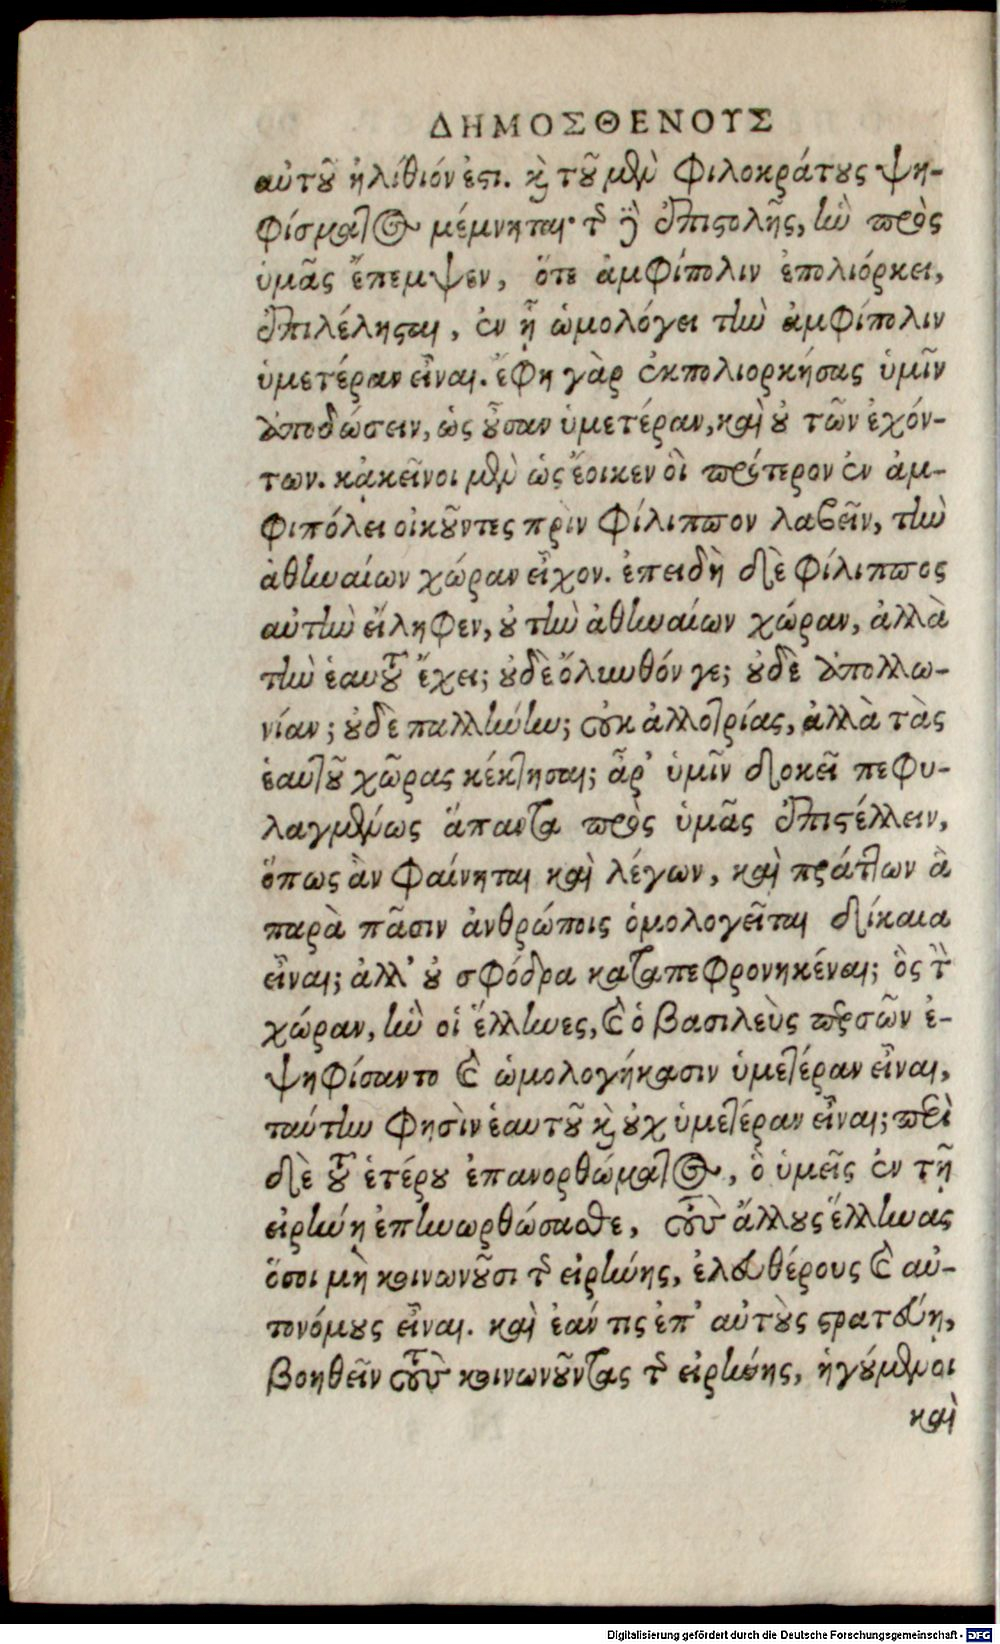 ΔΗΜΟΣΘΕΝΟΥΣ
αὐτοῦ ἠλίθιόν ἐστι. καὶ τοῦ μὲν Φιλοκράτους ψη-
φίσματος μέμνηται· τῆς δὲ ἐπιστολῆς, ἣν πρὸς
ὑμᾶς ἔπεμψεν, ὅτε ἀμφίπολιν ἐπολιόρκει,
ἐπιλέλησται, ἐν ᾗ ὡμολόγει τὴν ἀμφίπολιν
ὑμετέραν εἶναι. ἔφη γὰρ ἐκπολιορκήσας ὑμῖν
ἀποδώσειν, ὡς οὖσαν ὑμετέραν, καὶ οὐ τῶν ἐχόν-
των. κᾀκεῖνοι μὲν ὡς ἔοικεν οἱ πρότερον ἐν ἀμ-
φιπόλει οἰκοῦντες πρὶν Φίλιππον λαβεῖν, τὴν
ἀθηναίων χώραν εἶχον. ἐπειδὴ δὲ Φίλιππος
αὐτὴν εἴληφεν, οὐ τὴν ἀθηναίων χώραν, ἀλλὰ
τὴν ἑαυτοῦ ἔχει; οὐδὲ ὄλυνθόν γε; οὐδὲ ἀπολλω-
νίαν; οὐδὲ παλλήνην; οὐκ ἀλλοτρίας, ἀλλὰ τὰς
ἑαυτοῦ χῶρας κέκτησται; ἆρ' ὑμῖν δοκεῖ πεφυ-
λαγμένως ἅπαντα πρὸς ὑμᾶς ἐπιστέλλειν,
ὅπως ἂν φαίνηται καὶ λέγων, καὶ πράττων ἃ
παρὰ πᾶσιν ἀνθρώποις ὁμολογεῖται δίκαια
εἶναι; ἀλλ' οὐ σφόδρα καταπεφρονηκέναι; ὃς τὴν
χώραν, ἣν οἱ ἕλληνες, καὶ ὁ βασιλεὺς περσῶν ἐ-
ψηφίσαντο καὶ ὡμολογήκασιν ὑμετέραν εἶναι,
ταύτην φησὶν ἑαυτοῦ καὶ οὐχ ὑμετέραν εἶναι; περὶ
δὲ τοῦ ἑτέρου ἐπανορθώματος, ὃ ὑμεῖς ἐν τῇ
εἰρήνη ἐπηνωρθώσασθε, τοὺς ἄλλους ἕλληνας
ὅσοι μὴ κοινωνοῦσι τῆς εἰρήνης, ἐλευθέρους καὶ αὐ-
τονόμους εἶναι. καὶ ἐάν τις ἐπ' αὐτοὺς στρατεύῃ,
βοηθεῖν τοὺς κοινωνοῦντας τῆς εἰρήνης, ἡγούμενοι
καὶ
Digitalisierung gefördert durch die Deutsche Forschungsgemeinschaft - DFG